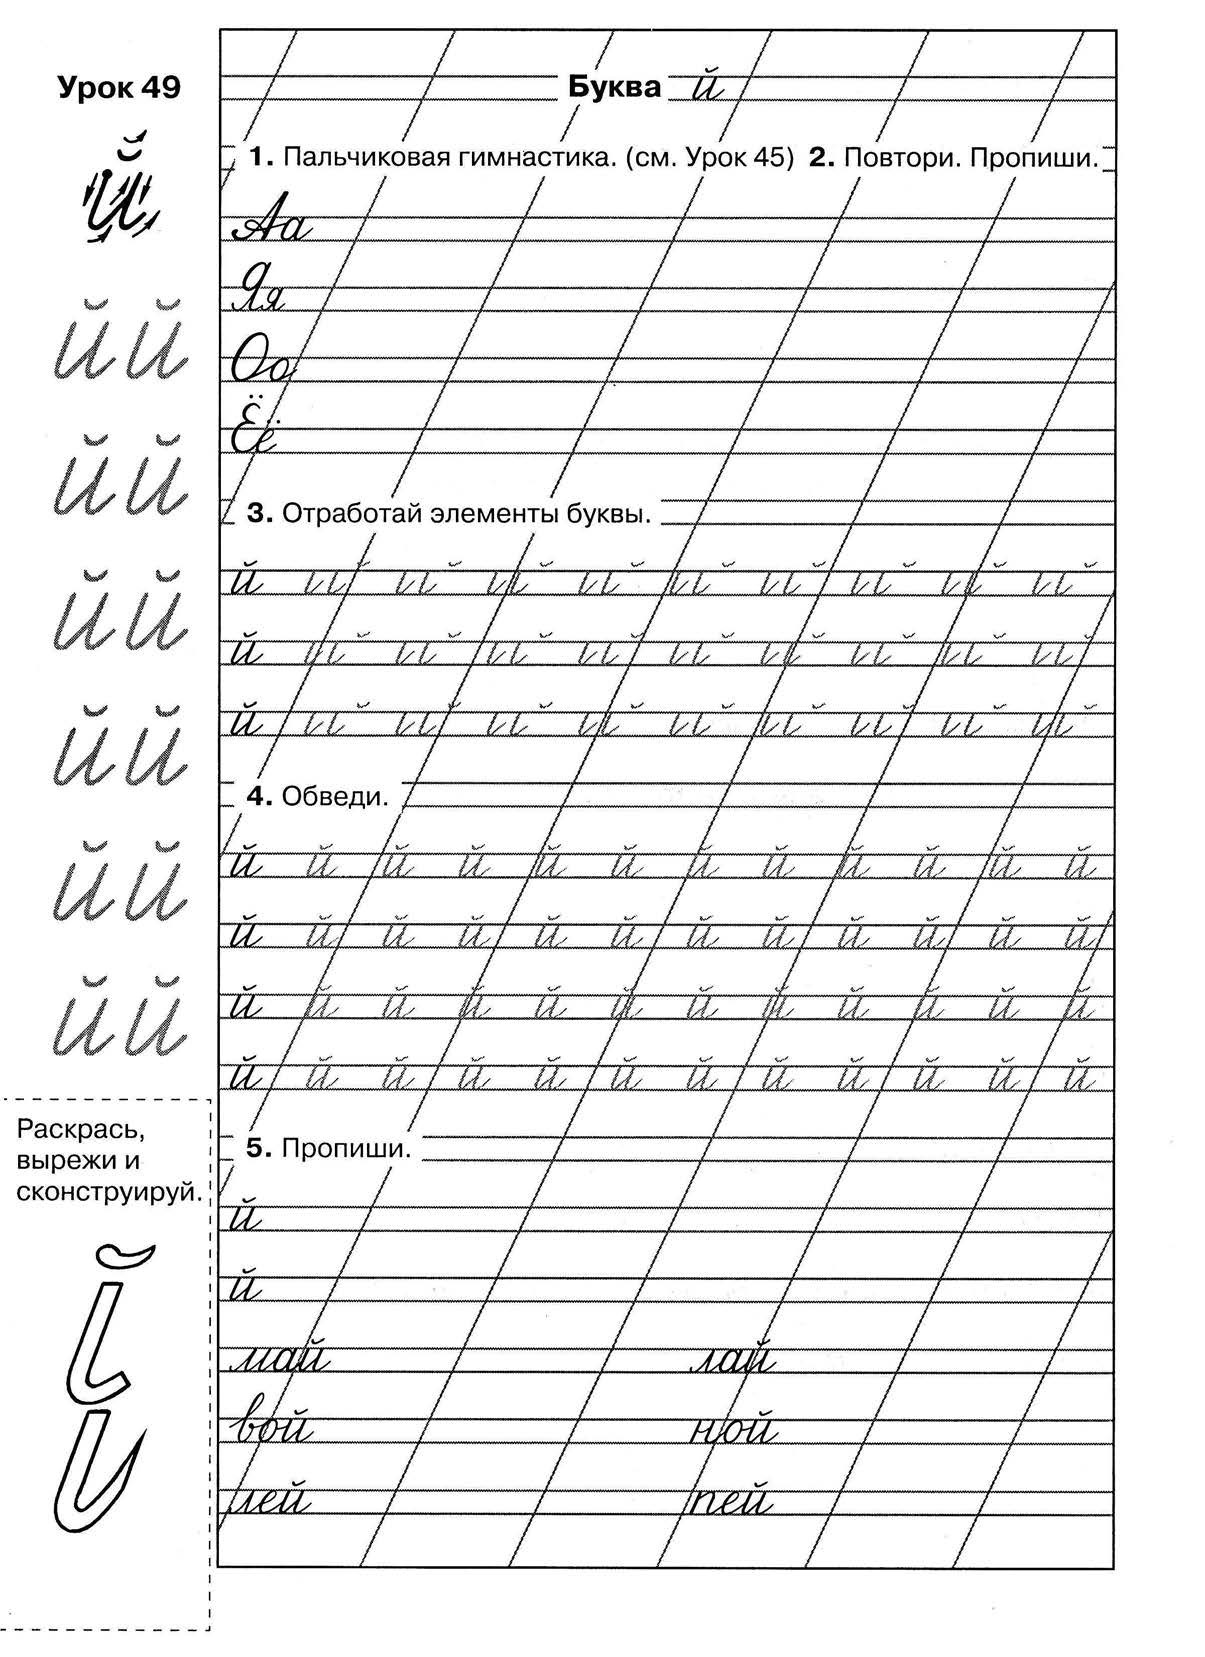 Урок 49
Буква й
1. Пальчиковая гимнастика. (см. Урок 45) 2. Повтори. Пропиши.
й
Аа
Яя
й й
Оо
Ёё
й й
3. Отработай элементы буквы.
й
й й
й
й
й й
4. Обведи.
й й й й й й й й й й й й
й й
й й й й й й й й й й й й
й й й й й й й й й й й й
й й
й й й й й й й й й й й й
Раскрась,
вырежи и
сконструируй.
5. Пропиши.
й
й
май лай
вой ной
лей пей